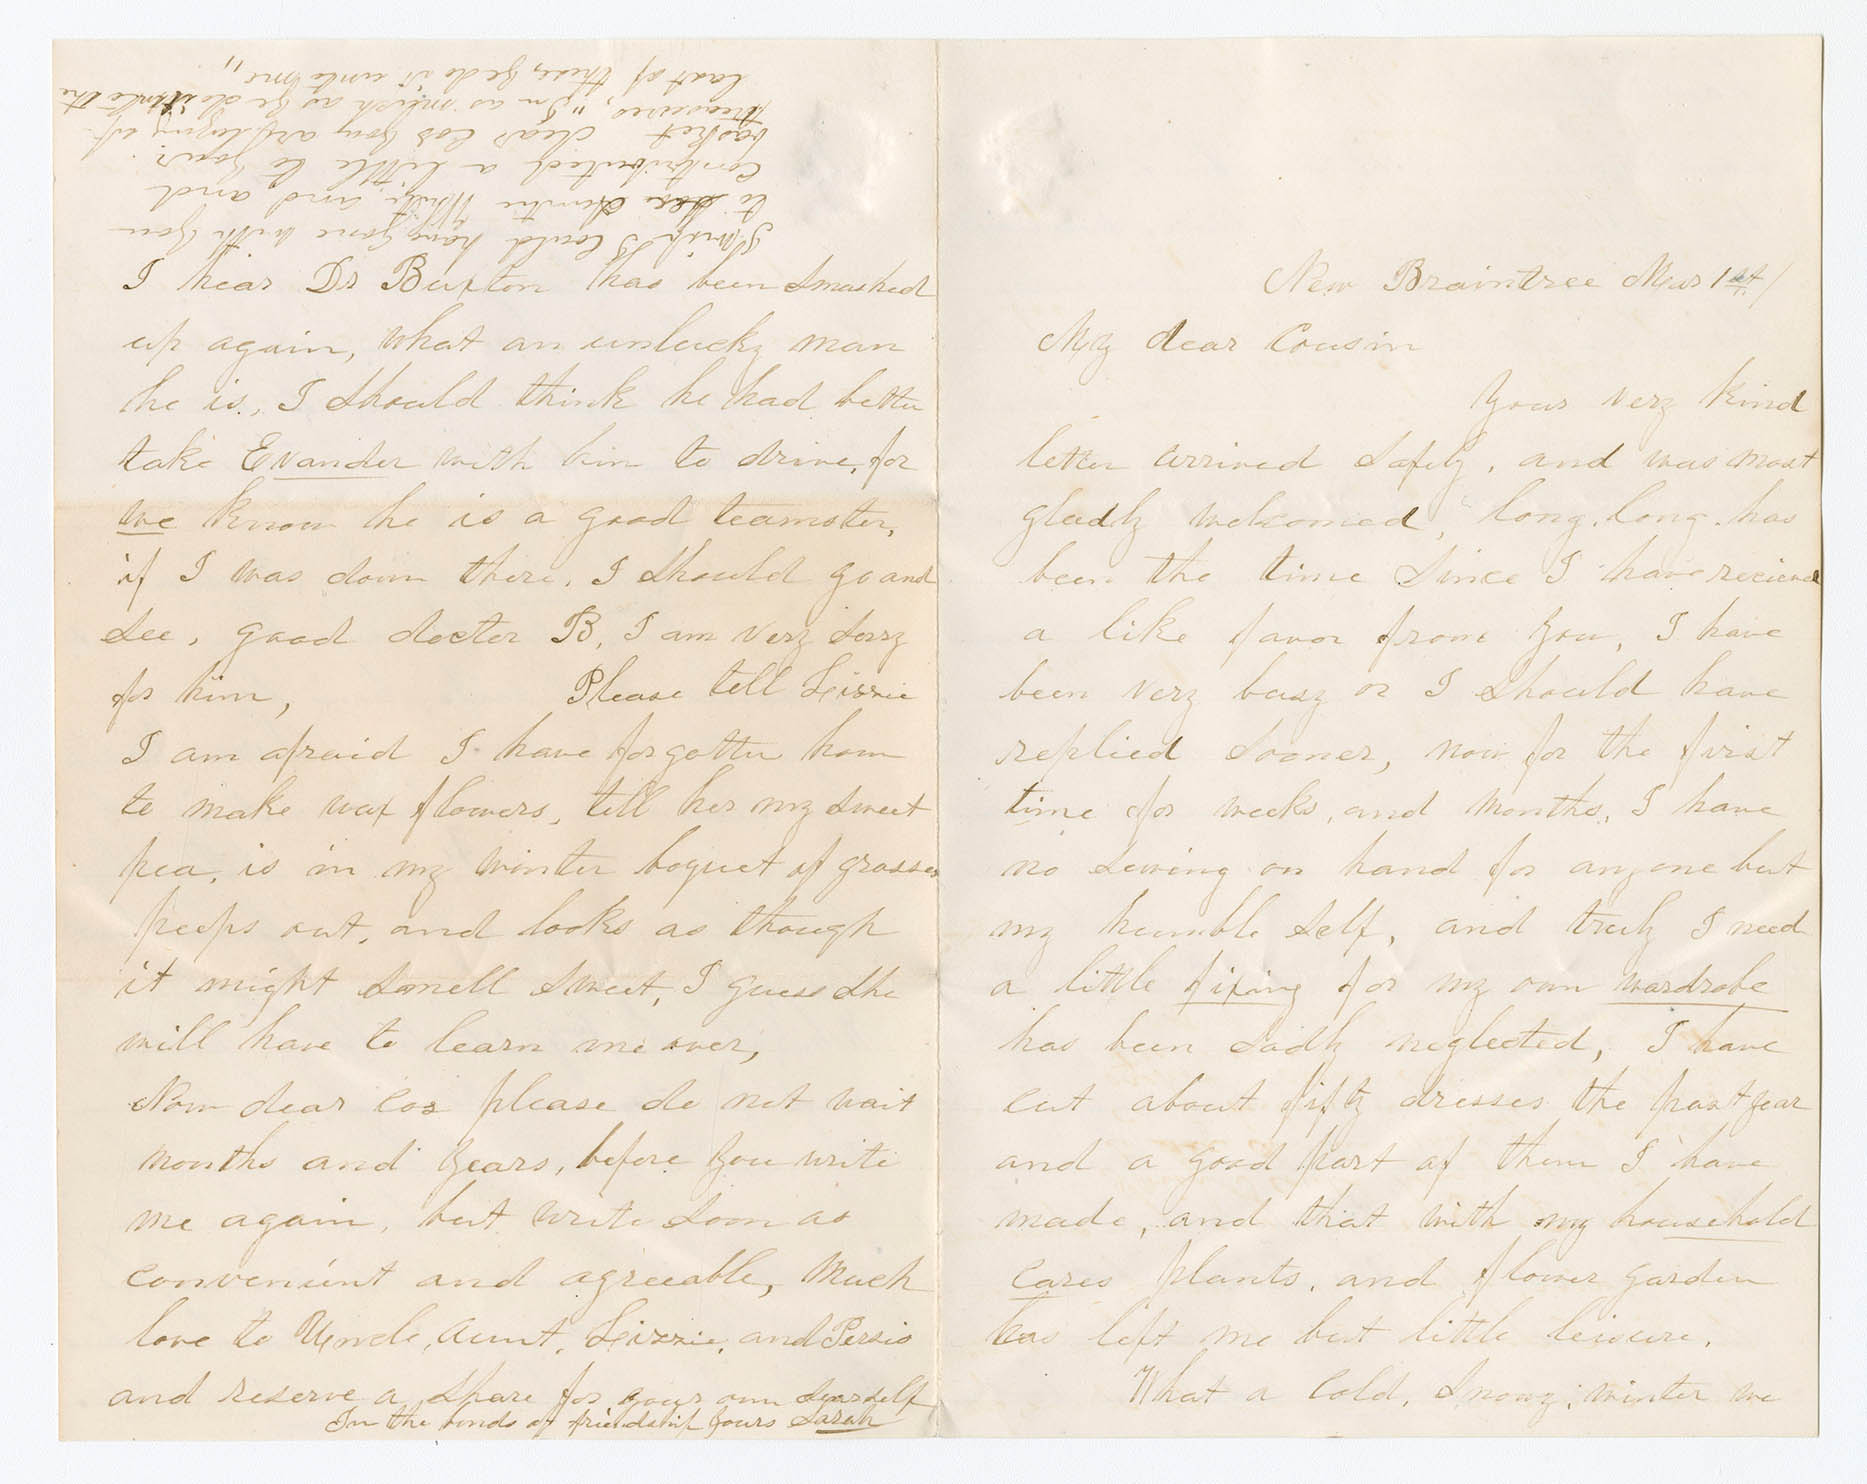 New Braintree Mar 1st/
My dear Cousin
Your very kind
letter arrived safely, and was most
gladly welcomed, long, long has
been the time since I have recieved
a like favor from you, I have
been very busy or I should have
replied sooner, now for the first
time for weeks, and months, I have
no sewing on hand for anyone but
my humble self, and truly I need
a little fixing for my own wardrobe
has been sadly neglected, I have
cut about fifty dresses the past year
and a good part of them I have
made, and that with my household
cares plants, and flower garden
has left me but little leisure.
What a cold, snowy, winter we
I hear Dr Buxton has been smashed
up again, what an unlucky man
he is, I should think he had better
take Evander with him to drive, for
we know he is a good teamster,
if I was down there, I should go and
see, good docter B, I am very sorry
for him, Please tell Lizzie
I am afraid I have forgotten how
to make wax flowers, tell her my sweet
pea, is in my winter boquet of grasses
peeps out, and looks as though
it might smell sweet, I guess she
will have to learn me over,
Now dear coz please do not wait
months and years, before you write
me again, but write soon as
convenient and agreeable, Much
love to Uncle, Aunt, Lizzie, and Persis
and reserve a share for your own dear self
In the bonds of friendship yours Sarah
I wish I could have gone with you
to see Auntie White and and
contributed a little to your
basket dear coz you are laying up
treasures, "In as much as ye do it unto the
least of these, ye do it unto me"